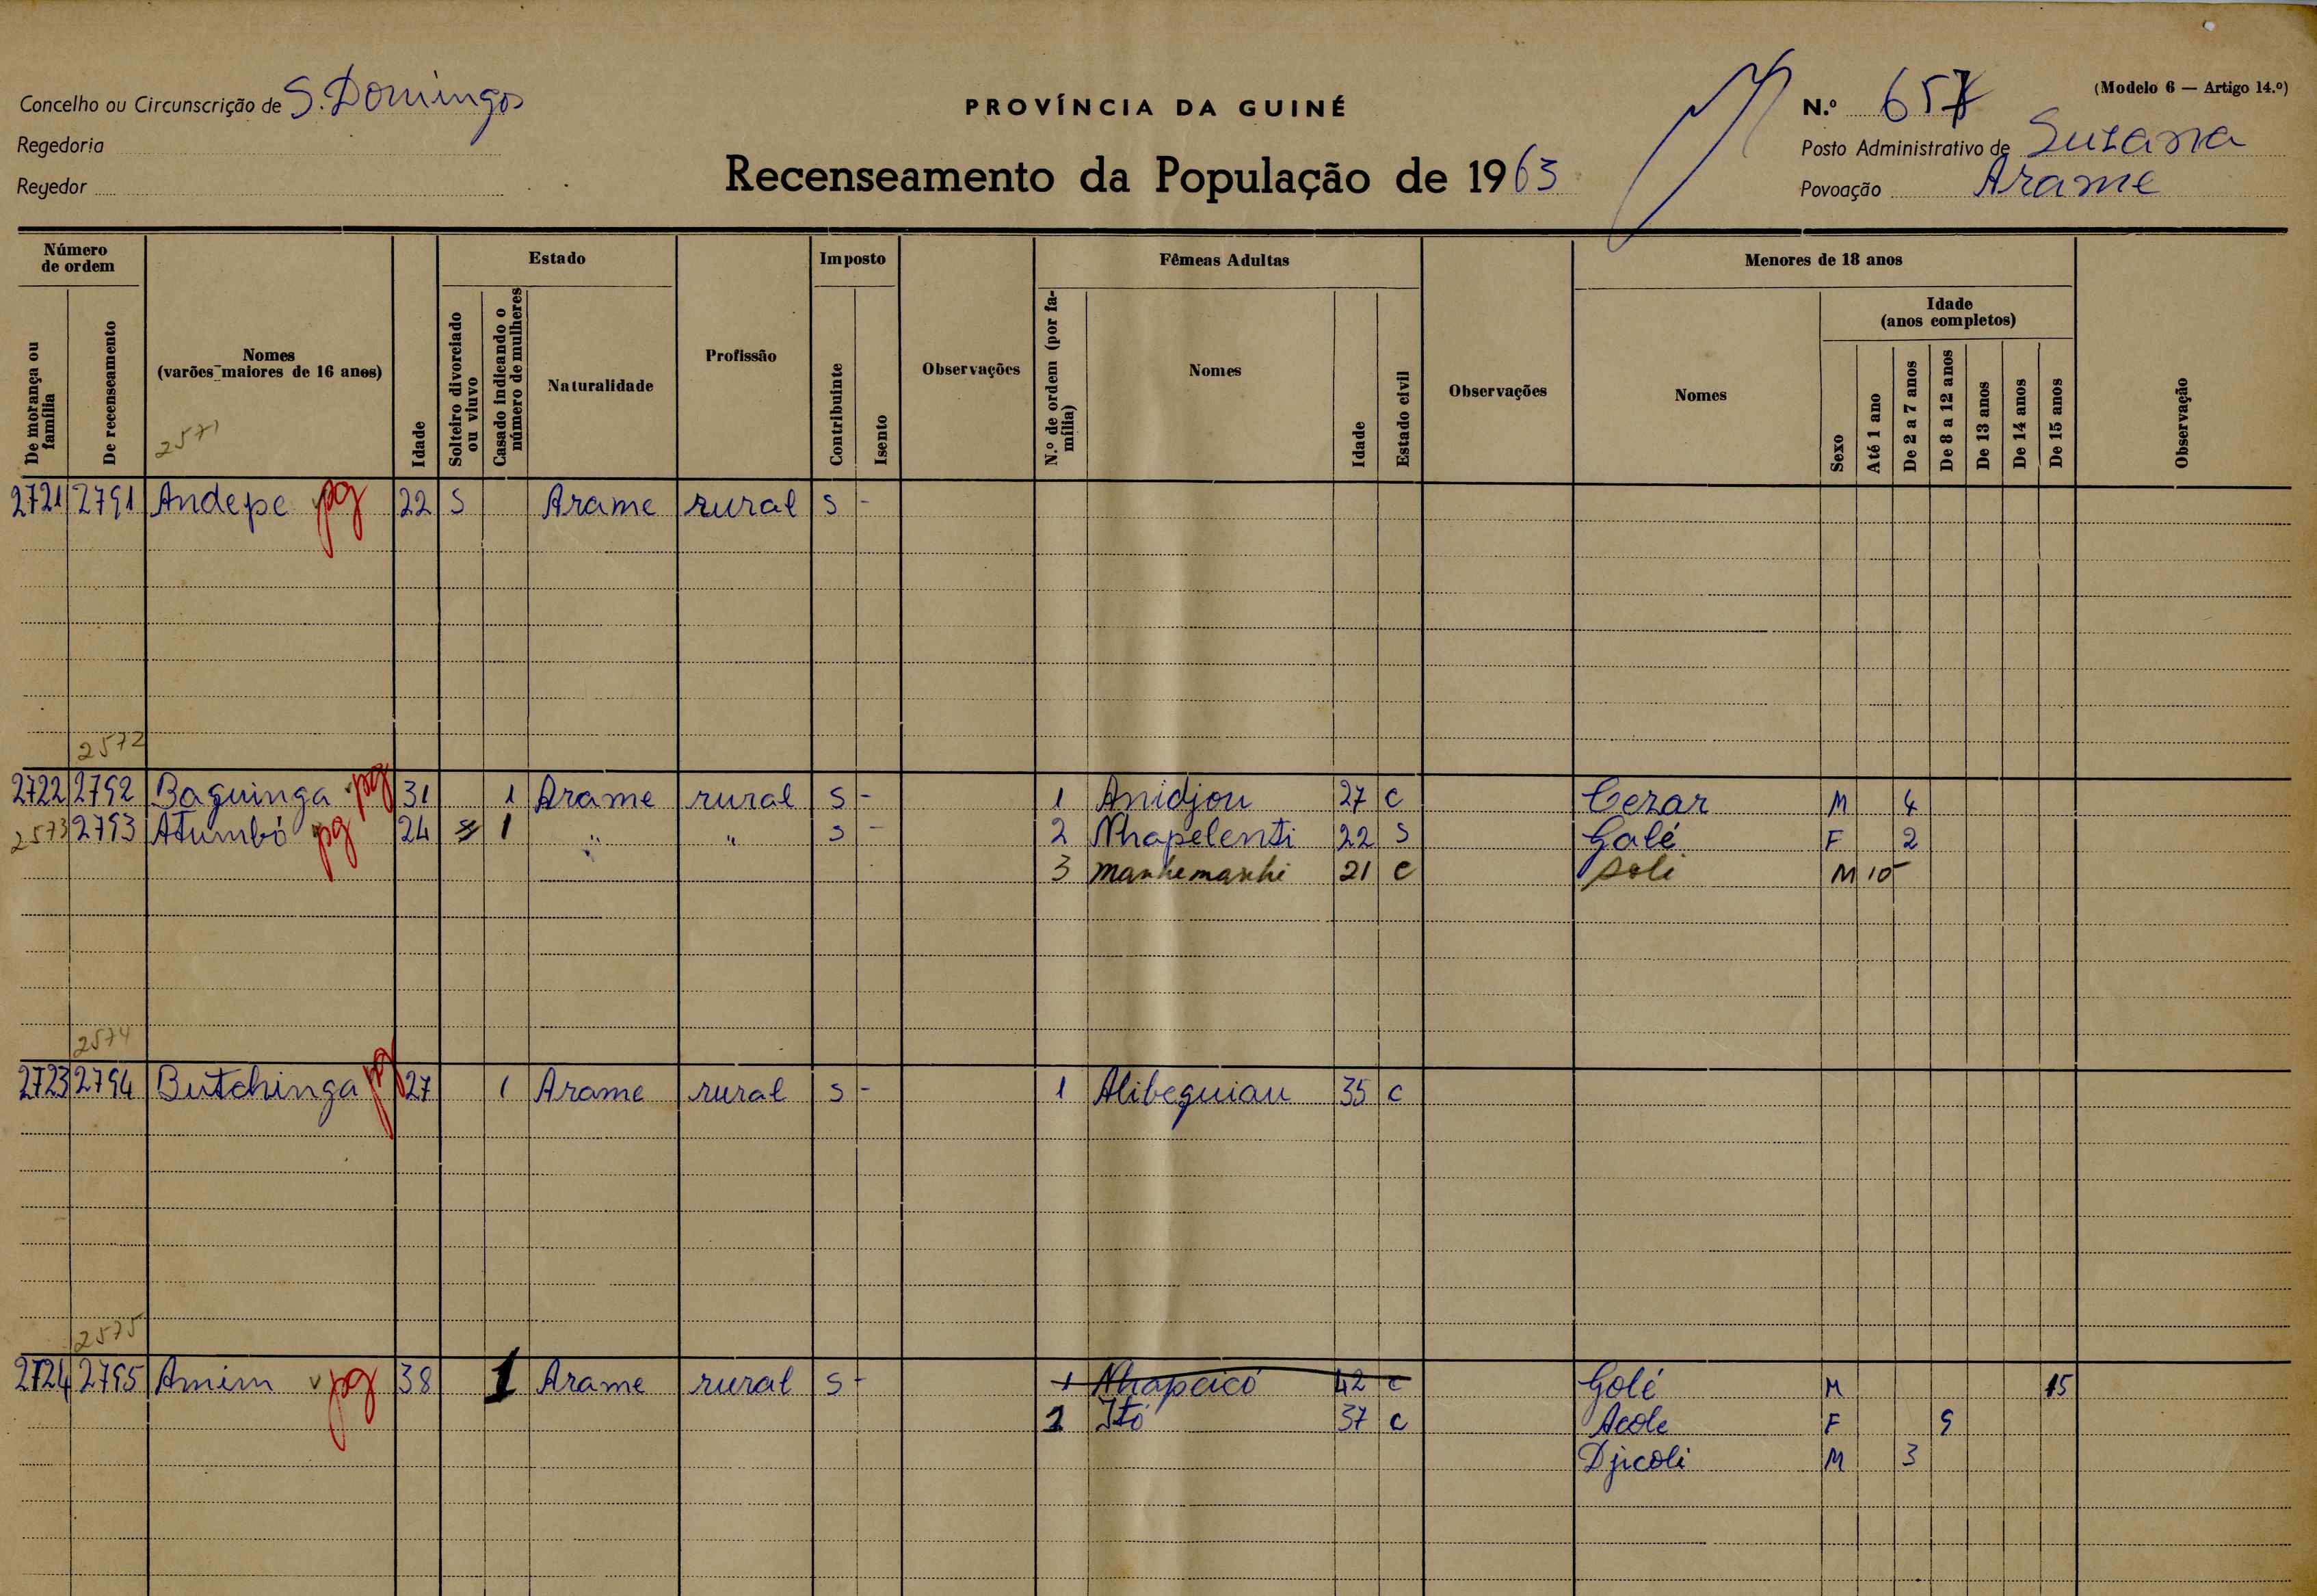 (Modelo 6 — Artigo 14.º)
Concelho ou Circunscrição de S. Domingos
PROVÍNCIA DA GUINÉ
N.º 657
Regedoria
Posto Administrativo de Suzana
Regedor
Recenseamento da População de 1963
Povoação Arame
Número de ordem
Estado
Imposto
Fêmeas Adultas
Menores de 18 anos
Idade (anos completos)
De morança ou família
De recenseamento
Nomes (varões maiores de 16 anos)
Idade
Solteiro divorciado ou viuvo
Casado indicando o número de mulheres
Naturalidade
Profissão
Contribuinte
Isento
Observações
N.º de ordem (por família)
Nomes
Idade
Estado civil
Observações
Nomes
Sexo
Até 1 ano
De 2 a 7 anos
De 8 a 12 anos
De 13 anos
De 14 anos
De 15 anos
Observação
2571
2721 2791 Andepe pg 22 S Arame rural S -
2572
2722 2792 Baguinga pg 31 1 Arame rural S - 1 Anidjou 27 C Cerar M 4
2573 2793 Atumbó pg 24 1 " " S - 2 Nhapelenti 22 S Galé F 2
3 manhemanhi 21 C Soli M 10
2574
2723 2794 Butchinga pg 27 1 Arame rural S - 1 Alibeguiau 35 C
2575
2724 2795 Amim pg 38 1 Arame rural S - 1 Nhapcicó 42 C Golé M 15
1 Itó 37 C Acole F 9
Djicoli M 3